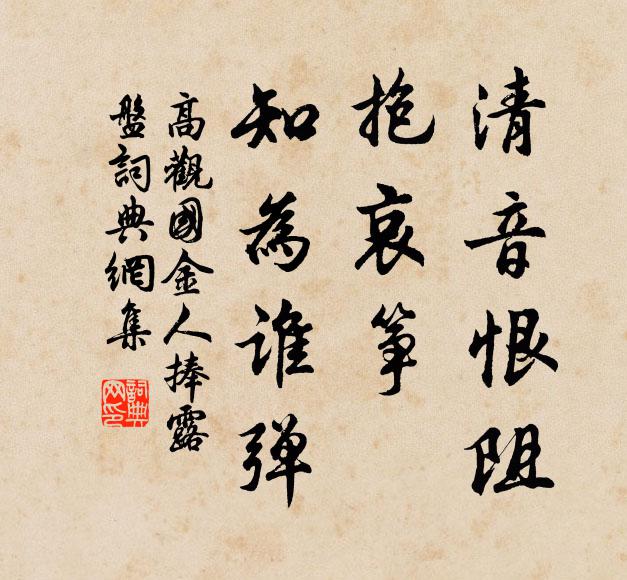 清音恨阻
抱哀箏
知為誰弹
高觀國金人捧露
盤詞典網集
詞典網印